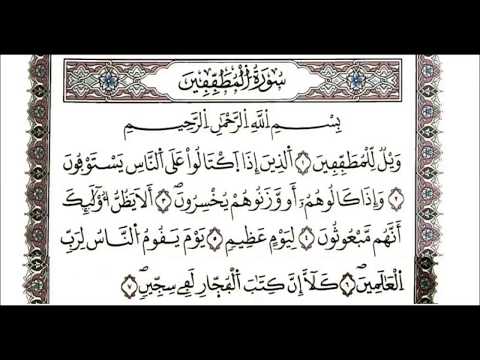 سُورَةُ الْمُطَفِّفِينَ
بِسْمِ اللَّهِ الرَّحْمَٰنِ الرَّحِيمِ
وَيْلٌ لِّلْمُطَفِّفِينَ ١ الَّذِينَ إِذَا اكْتَالُوا عَلَى النَّاسِ يَسْتَوْفُونَ
٢ وَإِذَا كَالُوهُمْ أَو وَّزَنُوهُمْ يُخْسِرُونَ ٣ أَلَا يَظُنُّ أُولَٰئِكَ
أَنَّهُم مَّبْعُوثُونَ ٤ لِيَوْمٍ عَظِيمٍ ٥ يَوْمَ يَقُومُ النَّاسُ لِرَبِّ
الْعَالَمِينَ ٦ كَلَّا إِنَّ كِتَابَ الْفُجَّارِ لَفِي سِجِّينٍ ٧